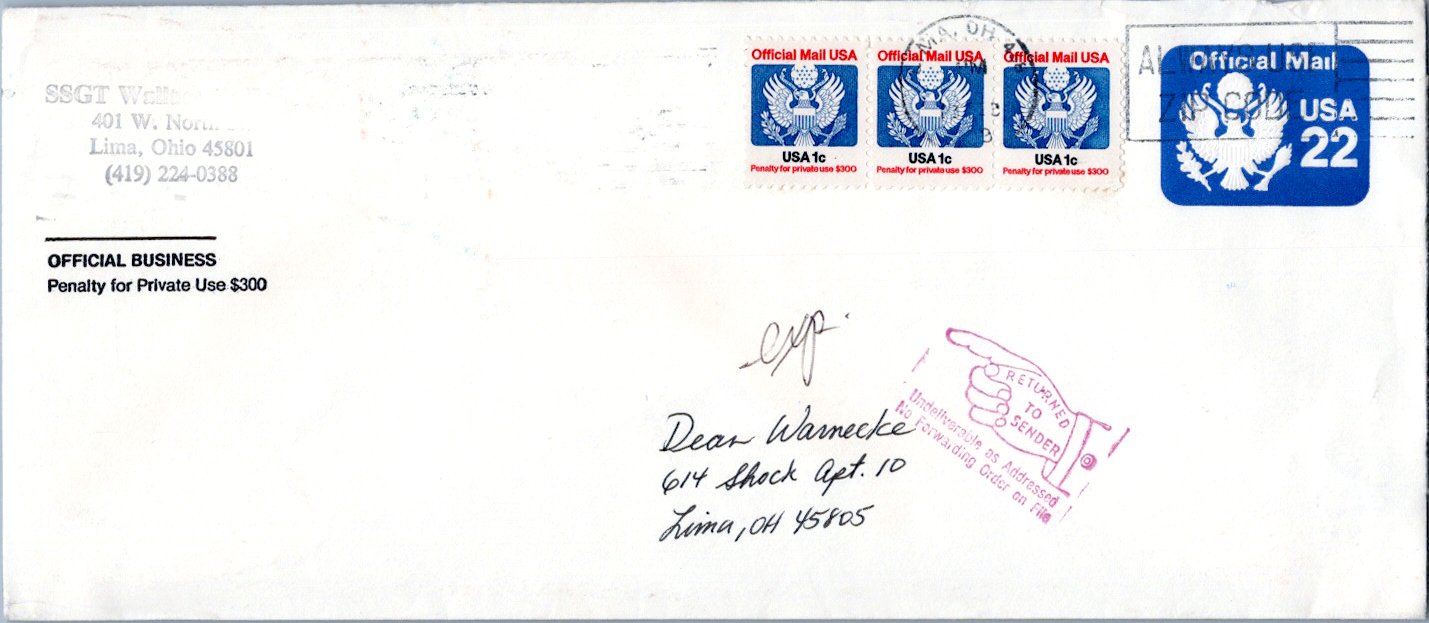 SSGT
401 W.
Lima, Ohio 45801
(419) 224-0388
OFFICIAL BUSINESS
Penalty for Private Use $300
Official Mail USA
USA 1c
Penalty for private use $300
Official Mail USA
USA 1c
Penalty for private use $300
Official Mail USA
USA 1c
Penalty for private use $300
MA, OH
ALWAYS USE
ZIP CODE
Official Mail
USA
22
exp.
Dean Warnecke
614 Shock Apt. 10
Lima, OH 45805
RETURNED
TO
SENDER
Undeliverable as Addressed
No Forwarding Order on File